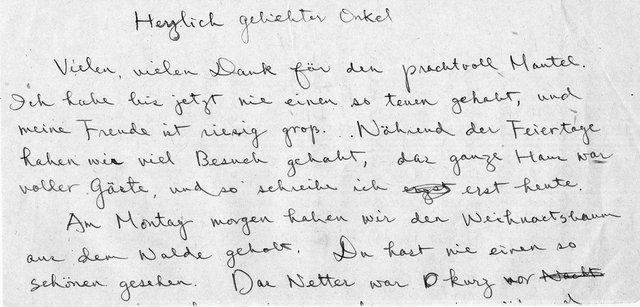 Herzlich geliebter Onkel
Vielen, vielen Dank för den prachtvoll Mantel.
Ich habe bis jetzt nie einen so teuen gehabt, und
meine Freude ist riesig groß. Während der Feiertage
haben wir viel Besuch gehabt, das ganze Haus war
voller Gäste, und so schreibe ich erst heute.
Am Montag morgen haben wir den Weihnactsbaum
aus dem Walde geholt. Du hast nie einen so
schönen gesehen. Das Wetter war kurz vor Nacht